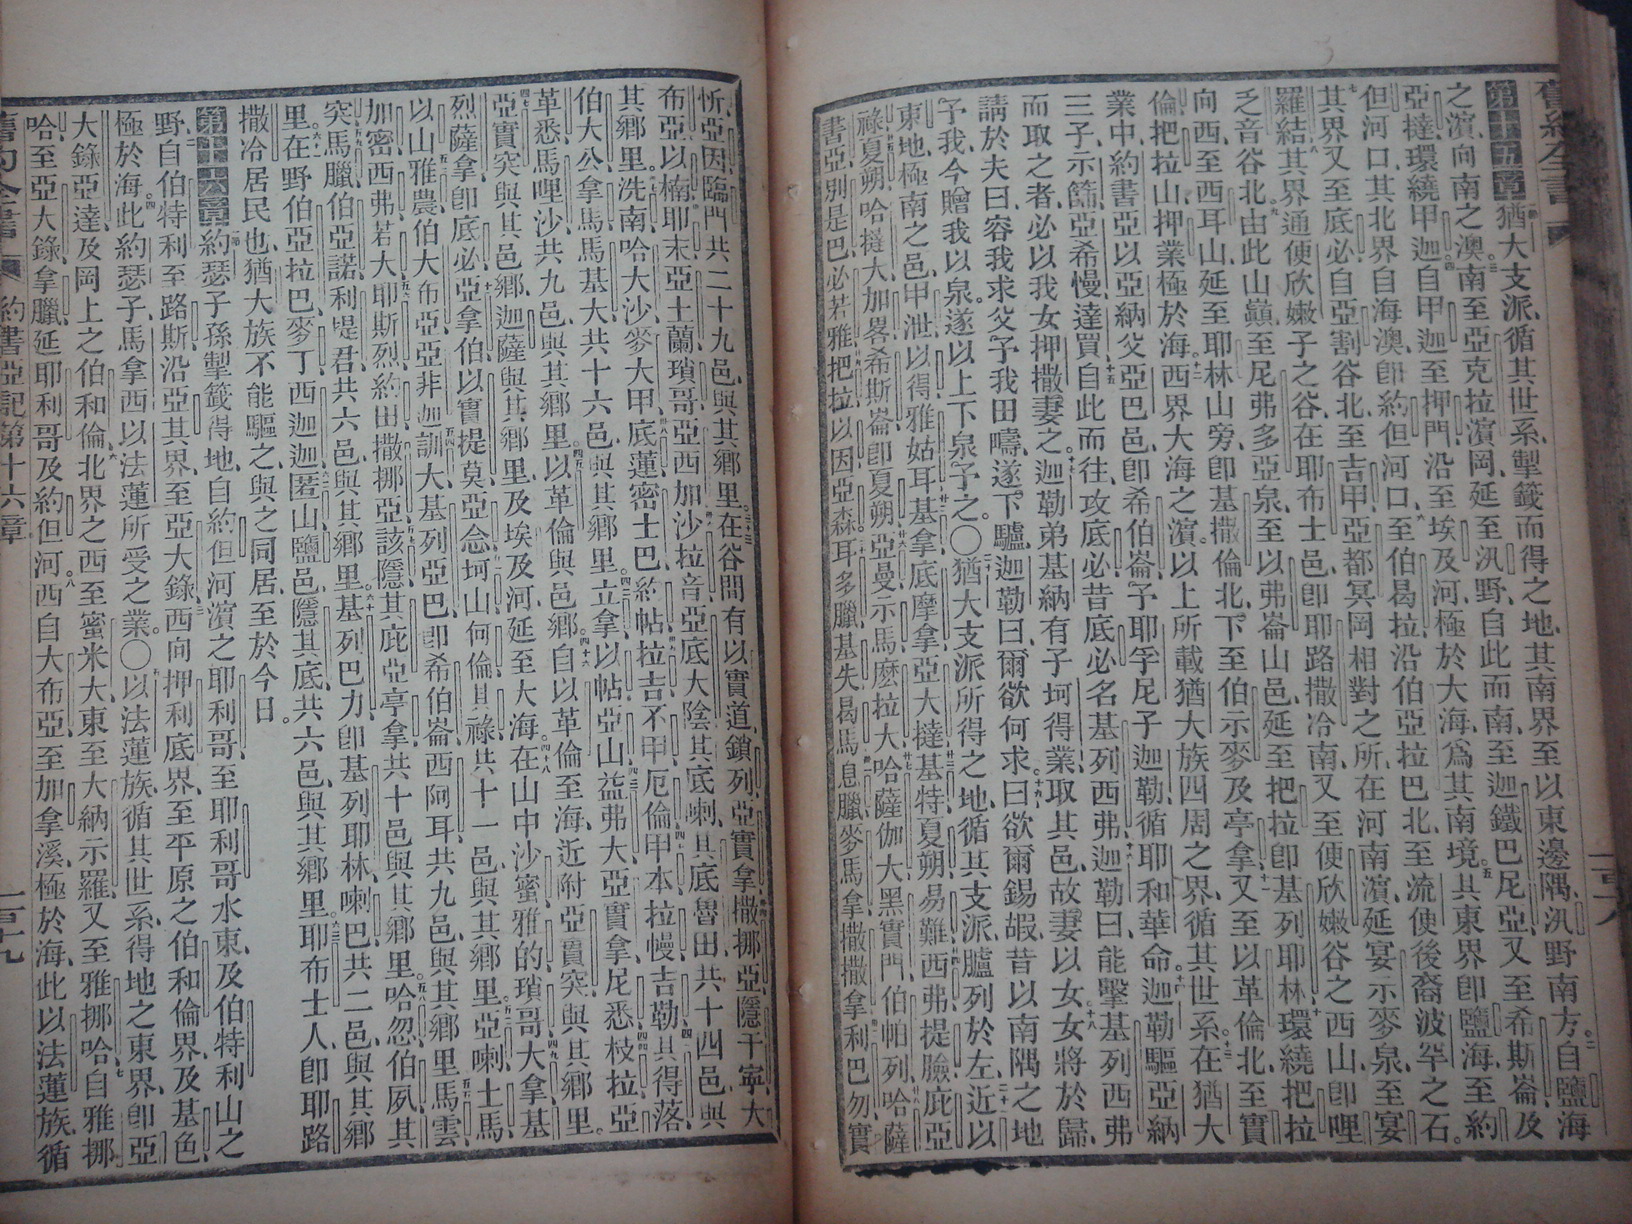 第十五章猶大支派、循其世系、掣籤而得之地、其南界至以東邊隅、汎野南方。自鹽海
之濱、向南之澳、南至亞克拉濱岡、延至汎野、自此而南、至迦鐵巴尼亞、又至希斯崙、及
亞撻、環繞甲迦、自甲迦至押門、沿至埃及河、極於大海、爲其南境。其東界卽鹽海、至約
但河口、其北界自海澳、卽約但河口、至伯曷拉、沿伯亞拉巴北、至流便後裔波罕之石。
其界又至底必、自亞割谷北、至吉甲、亞都冥岡相對之所、在河南濱、延宴示麥泉、至宴
羅結、其界通便欣嫩子之谷、在耶布士邑、卽耶路撒冷南、又至便欣嫩谷之西山、卽哩
乏音谷北、由此山巔、至尼弗多亞泉、至以弗崙山邑、延至把拉、卽基列耶林、環繞把拉
向西、至西耳山、延至耶林山旁、卽基撒倫北、下至伯示麥、及亭拿、又至以革倫北、至實
倫、把拉山、押業、極於海、西界大海之濱、以上所載、猶大族四周之界、循其世系。在猶大
業中、約書亞以亞納父亞巴邑、卽希伯崙、予耶孚尼子迦勒、循耶和華命。迦勒驅亞納
三子、示篩、亞希慢、達買、自此而往攻底必、昔底必名基列西弗、迦勒曰、能擊基列西弗
而取之者、必以我女押撒妻之。迦勒弟基納有子坷得業、取其邑、故妻以女。女將於歸、
請於夫曰、容我求父予我田疇、遂下驢、迦勒曰、爾欲何求。曰、欲爾錫嘏、昔以南隅之地
予我、今贈我以泉。遂以上下泉予之。〇猶大支派所得之地、循其支派、臚列於左、近以
東地、極南之邑、甲泄、以得、雅姑耳、基拿、底摩拿、亞大撻、基特、夏朔、易難、西弗、提臉、庇亞
祿、夏朔哈撻大、加畧希斯崙、卽夏朔、亞曼、示馬、摩拉大、哈薩伽大、黑實門、伯帕列、哈薩
書亞、別是巴、必若雅、把拉、以因、亞森、耳多臘、基失、曷馬、息臘、麥馬拿、撒撒拿、利巴勿、實
忻、亞因、臨門、共二十九邑、與其鄉里。在谷間有以實道、鎖列、亞實拿、撒挪亞、隱干寧、大
布亞、以楠、耶末、亞土蘭、瑣哥、亞西加、沙拉音、亞底大陰、其底喇、其底魯田、共十四邑、與
其鄉里。洗南、哈大沙、麥大甲、底蓮、密士巴、約帖、拉吉、不甲、厄倫、甲本、拉幔、吉勒、其得落、
伯大公、拿馬、馬基大、共十六邑、與其鄉里。立拿、以帖、亞山、益弗大、亞實拿、尼悉、枝拉、亞
革悉、馬哩沙、共九邑、與其鄉里。以革倫與邑鄉、自以革倫至海、近附亞實突、與其鄉里。
亞實突、與其邑鄉、迦薩與其鄉里、及埃及河、延至大海、在山中沙蜜、雅的、瑣哥、大拿、基
列薩拿、卽底必、亞拿伯、以實提莫、亞念、坷山、何倫、其祿、共十一邑、與其鄉里。亞喇、士馬、
以山、雅農、伯大布亞、亞非迦、訓大、基列亞巴、卽希伯崙、西阿耳、共九邑、與其鄉里。馬雲、
加密、西弗、若大、耶斯列、約田、撒挪亞、該隱、其庇亞、亭拿、共十邑、與其鄉里。哈忽、伯夙、其
突、馬臘、伯亞諾、利提君、共六邑、與其鄉里。基列巴力、卽基列耶林、喇巴、共二邑、與其鄉
里。在野伯亞拉巴、麥丁、西迦迦、匿山、鹽邑、隱其底、共六邑、與其鄉里。耶布士人、卽耶路
撒冷居民也、猶大族不能驅之、與之同居、至於今日。
第十六章約瑟子孫掣籤得地、自約但河濱之耶利哥、至耶利哥水東、及伯特利山之
野、自伯特利至路斯、沿亞其界、至亞大錄、西向押利底界、至平原之伯和倫界、及基色、
極於海。此約瑟子馬拿西以法蓮所受之業。〇以法蓮族循其世系、得地之東界、卽亞
大錄亞達、及岡上之伯和倫、北界之西、至蜜米大、東至大納示羅、又至雅挪哈、自雅挪
哈、至亞大錄、拿臘、延耶利哥、及約但河。西自大布亞、至加拿溪、極於海、此以法蓮族、循
約書亞記第十六章